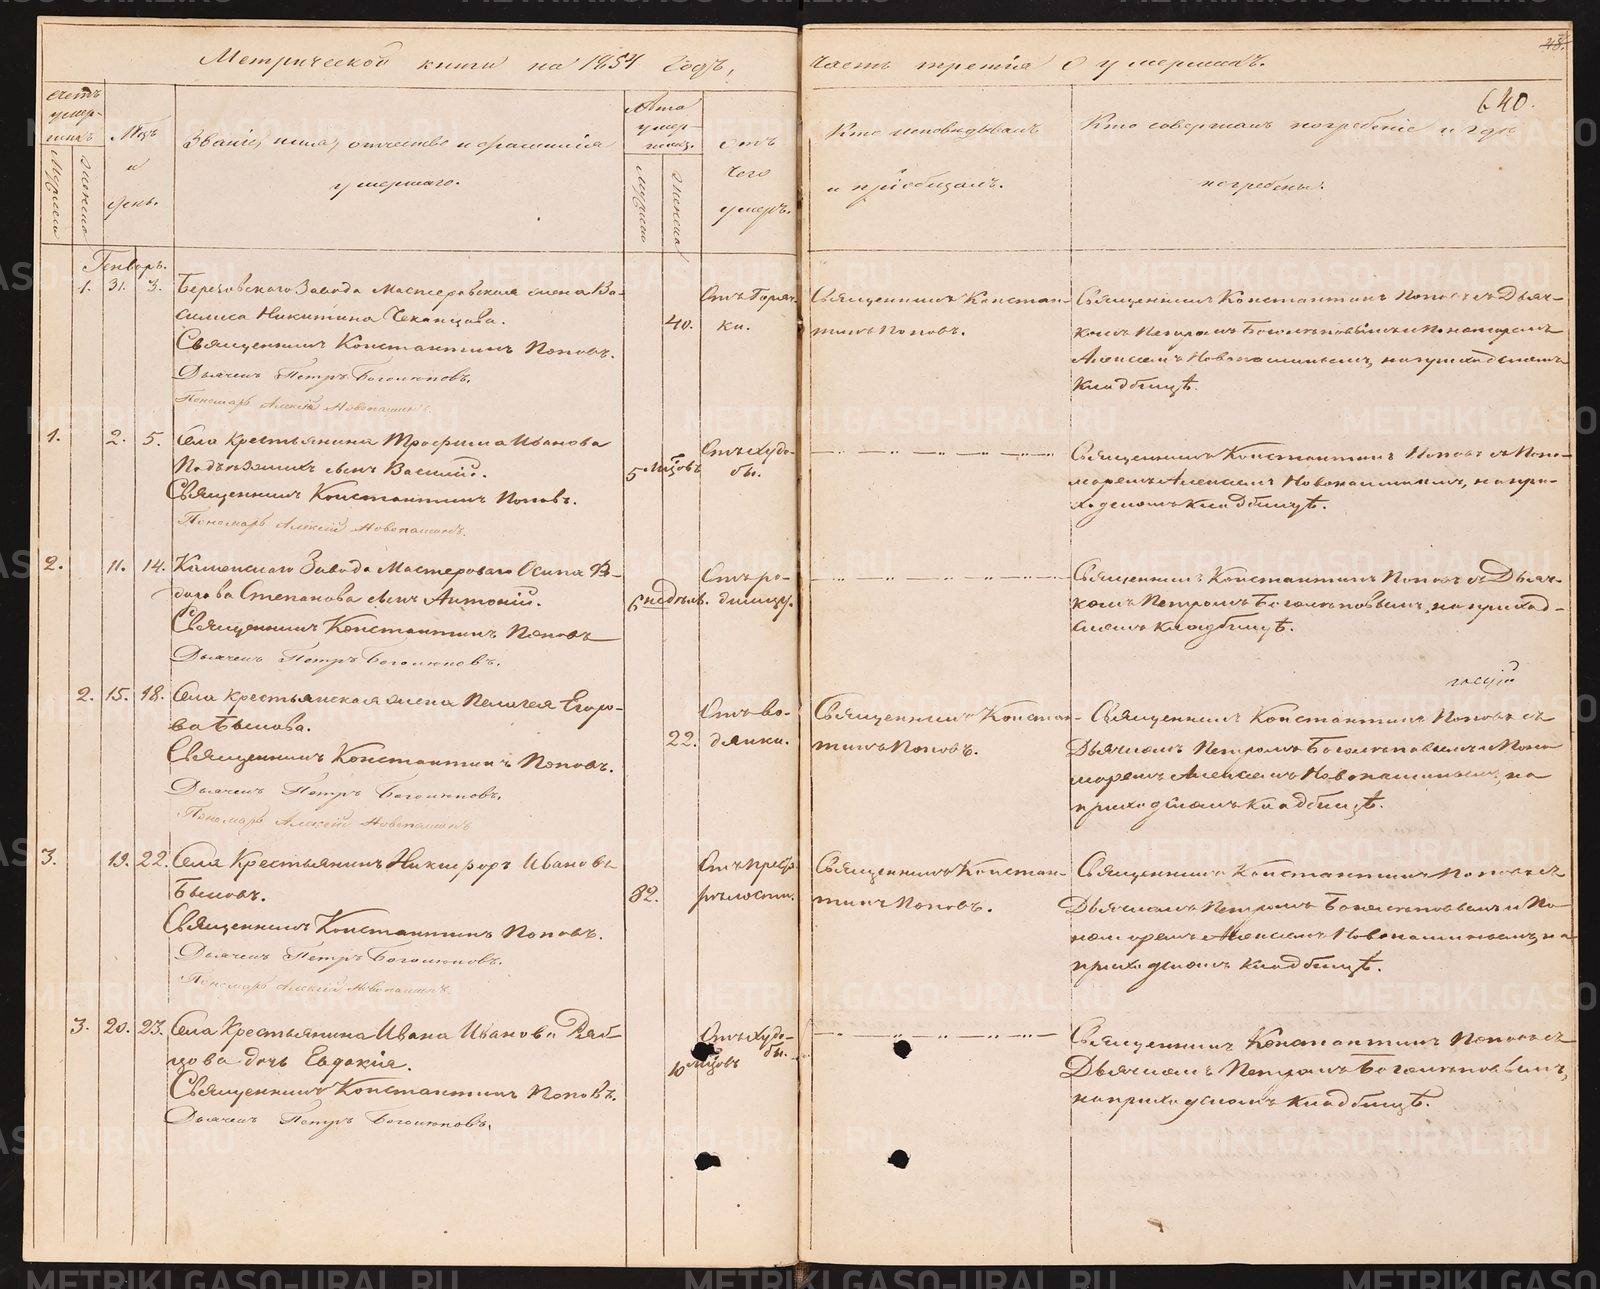 Метрической книги на 1854 годъ,
часть третія о умершихъ.
640.
Счетъ умер-
шихъ
Мужеска
Женска
Мѣсяцъ
и
день.
Званіе, имя, отчество и фамилія
умершаго.
Лѣта
умер-
шаго.
Мужеска
Женска
Отъ
чего
умеръ.
Кто исповѣдывалъ
и пріобщалъ.
Кто совершалъ погребеніе и гдѣ
погребены.
Генварь.
1. 31. 3. Березовскаго Завода Мастеровская жена Ва-
силиса Никитина Чеканцова.
Священникъ Константинъ Поповъ.
Дьячекъ Петръ Боголюповъ.
Пономарь Алексій Новопашинъ.
40.
Отъ Горяч-
ки.
Священникъ Констан-
тинъ Поповъ.
Священникъ Константинъ Поповъ съ Дьяч-
комъ Петромъ Боголюповымъ и Пономаремъ
Алексіемъ Новопашинымъ, на приходскомъ
кладбищѣ.
1. 2. 5. Села крестьянина Трофима Иванова
сынъ Василій.
Священникъ Константинъ Поповъ.
Пономарь Алексій Новопашинъ.
5 мѣсцовъ
Отъ худо-
бы.
Священникъ Константинъ Поповъ съ Поно-
маремъ Алексіемъ Новопашинымъ, на при-
ходскомъ кладбищѣ.
2. 11. 14. Каменскаго Завода Мастероваго Осипа Ѳ-
дорова Степанова сынъ Антоній.
Священникъ Константинъ Поповъ
Дьячекъ Петръ Боголюповъ.
6 недѣль.
Отъ ро-
димцу.
Священникъ Константинъ Поповъ съ Дьяч-
комъ Петромъ Боголюповымъ, на приход-
скомъ кладбищѣ.
2. 15. 18. Села крестьянская жена Пелагея Егоро-
ва Быкова.
Священникъ Константинъ Поповъ.
Дьячекъ Петръ Боголюповъ.
Пономарь Алексій Новопашинъ
22.
Отъ во-
дянки.
Священникъ Констан-
тинъ Поповъ.
Священникъ Константинъ Поповъ съ
Дьячкомъ Петромъ Боголюповымъ и Поно-
маремъ Алексіемъ Новопашинымъ, на
приходскомъ кладбищѣ.
3. 19. 22. Села Крестьянинъ Никифоръ Ивановъ
Быковъ.
Священникъ Константинъ Поповъ.
Дьячекъ Петръ Боголюповъ.
Пономарь Алексій Новопашинъ.
82.
Отъ престо-
рѣлости.
Священникъ Констан-
тинъ Поповъ.
Священникъ Константинъ Поповъ съ
Дьячкомъ Петромъ Боголюповымъ и По-
номаремъ Алексіемъ Новопашинымъ, на
приходскомъ кладбищѣ.
3. 20. 23. Села Крестьянина Ивана Иванова Ряб-
цова дочь Евдокія.
Священникъ Константинъ Поповъ.
Дьячекъ Петръ Боголюповъ.
10 мѣсцовъ
Отъ худо-
бы.
Священникъ Константинъ Поповъ съ
Дьячкомъ Петромъ Боголюповымъ,
на приходскомъ кладбищѣ.
METRIKI.GASO-URAL.RU